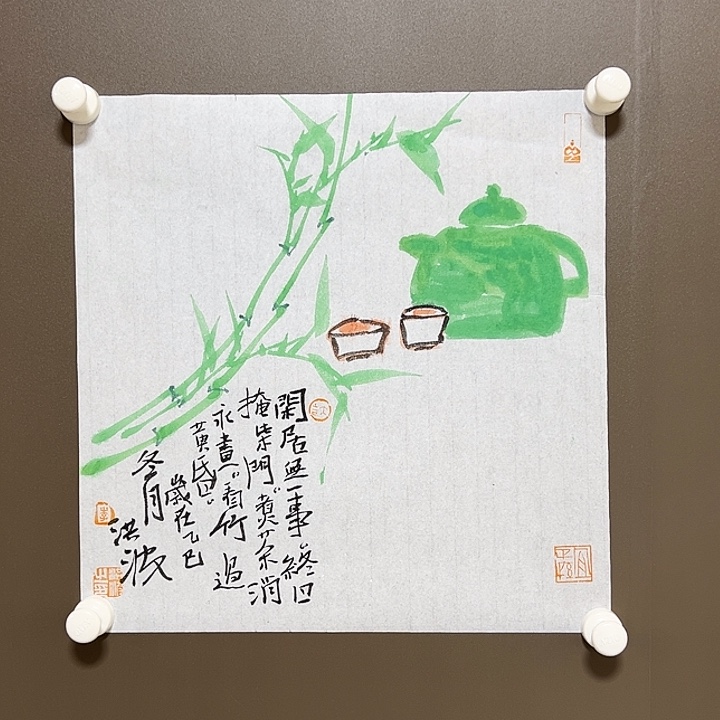 閑居無一事終日
掩柴門煮茶消
永晝看竹過
黄昏
歲在乙巳
冬月
洪波